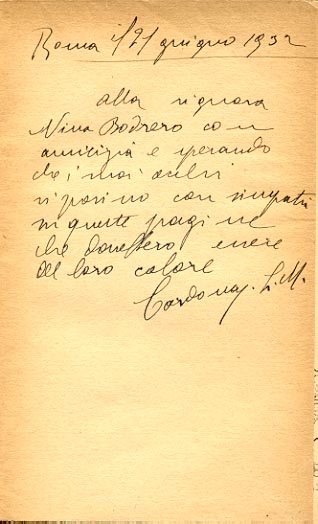 Roma il 21 giugno 1932
alla signora
Nina Bodrero con
amicizia e sperando
che i suoi occhi
riposino con simpatia
in queste pagine
che essere
del loro colore
L. M.